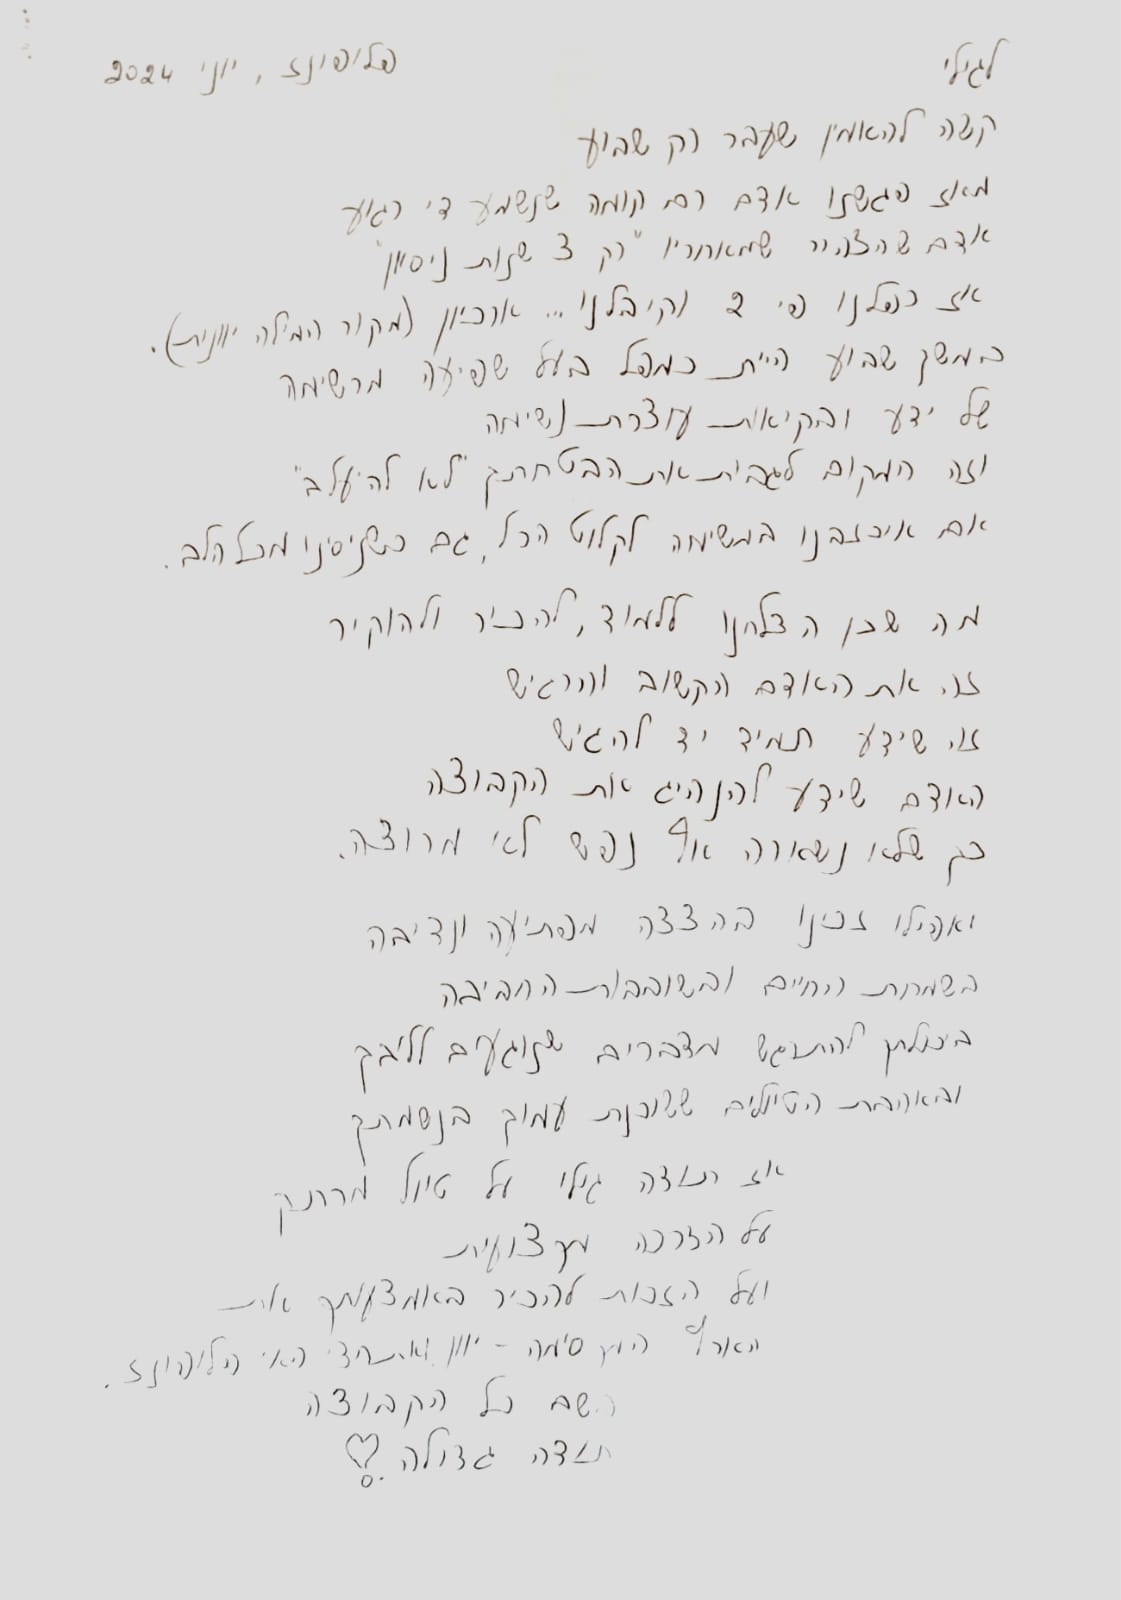 לגילי
פלופונז, יוני 2024
קשה להאמין שעבר רק שבוע
מאז פגשנו אדם רם קומה שנשמע די רגוע
אדם שהצהיר שמאחוריו "רק 3 שנות ניסיון"
אז כפלנו פי 2 וקיבלנו... ארכיון (מקור המילה יוונית).
במשך שבוע היית כמפל בעל שפיעה מרשימה
של ידע ובקיאות עוצרת נשימה
וזה המקום לגבות את הבטחתך "לא להיעלב"
אם איכזבנו במשימה לקלוט הכל, גם כשניסינו מכל הלב.
מה שכן הצלחנו ללמוד, להכיר ולהוקיר
זה את האדם הקשוב והרגיש
זה שידע תמיד יד להגיש
האדם שידע להנהיג את הקבוצה
כך שלא נשארה אף נפש לא מרוצה.
ואפילו זכינו בהצצה מפתיעה ונדיבה
בשמחת החיים ובשובבות החביבה
ביכולתך להתרגש מדברים שנוגעים לליבך
ובאהבת הטיולים ששוכנת עמוק בנשמתך
אז תודה גילי על טיול מרתק
על הדרכה מקצועית
ועל הזכות להכיר באמצעותך את
הארץ היפיפיה - יוון ואת חצי האי הפלופונז.
בשם כל הקבוצה
תודה גדולה.